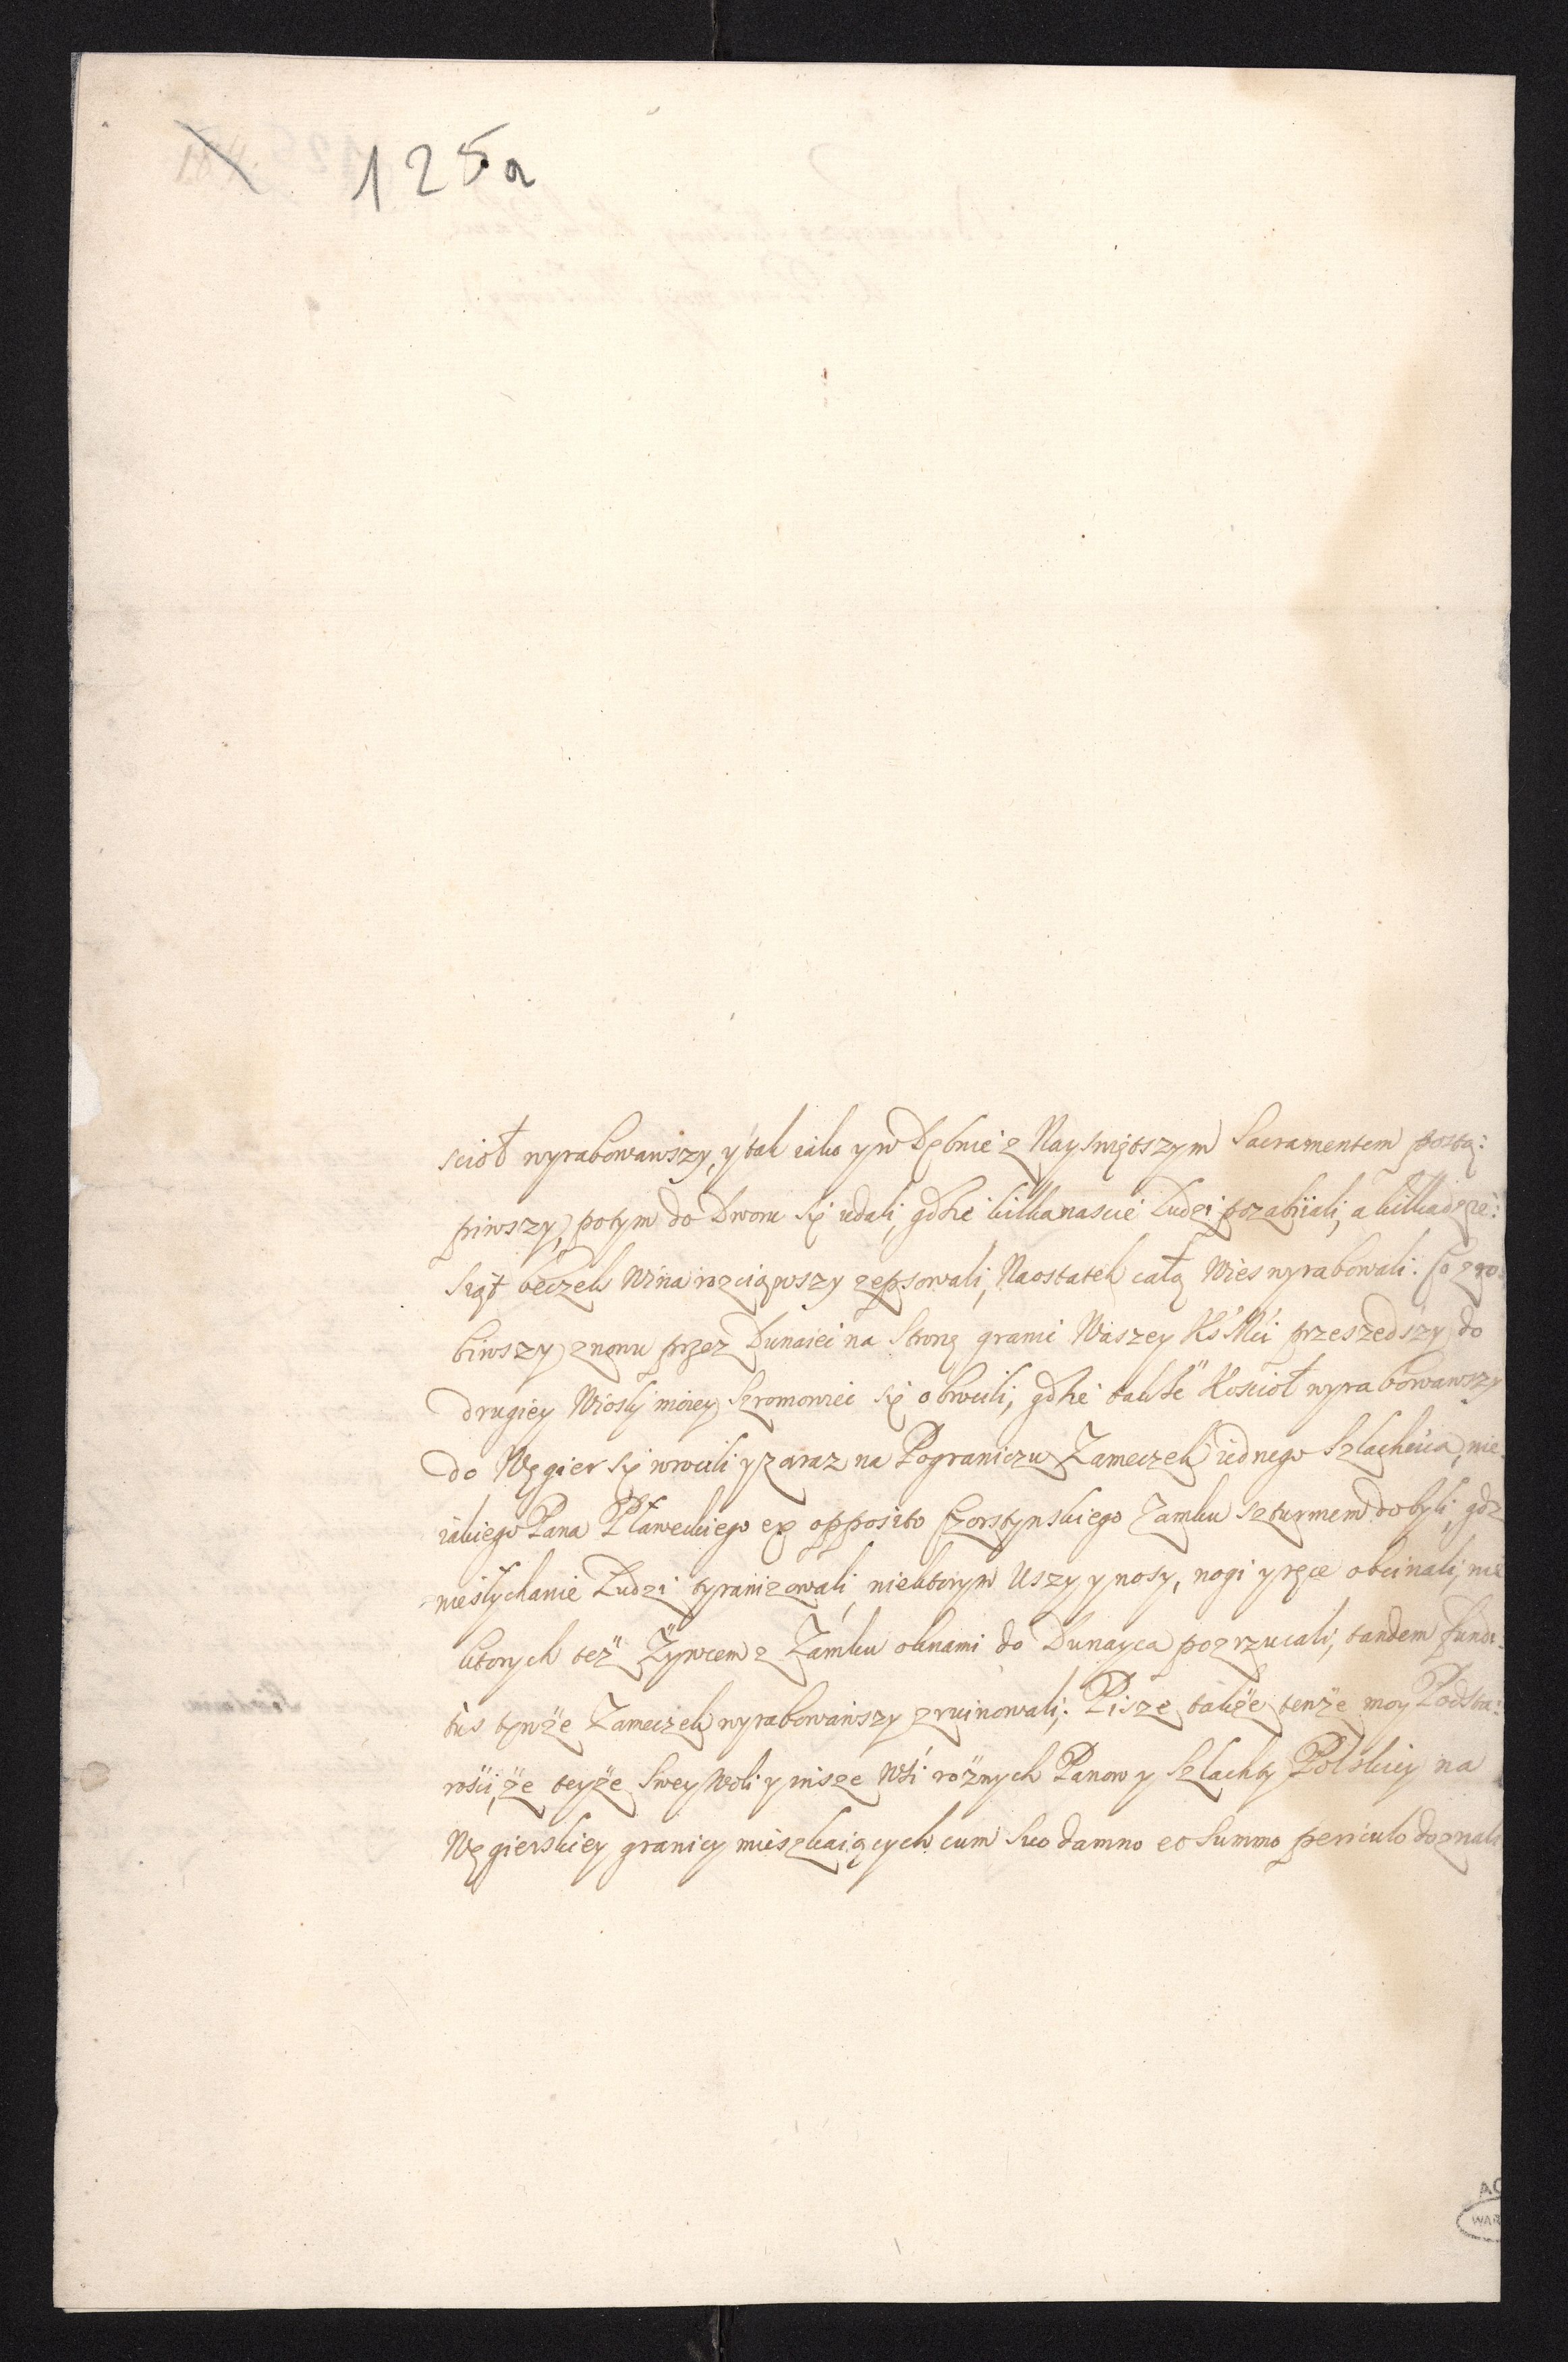 125a
scioł wyrabowawszy, y tak iako y w Dębnie z Nayswiętszym Sacramentem postą:
piwszy, potym do Dworu się udali, gdzie kilkanascie Ludzi pozabiiali, a kilkadzie:
siąt beczek Wina rozciąwszy zepsowali, Naostatek całą Wies wyrabowali: Co zro:
biwszy znowu przez Dunaiec na Stronę granic Waszey Ks Mci przeszedszy do
drugiey Wioski moiey Szromowiec się obrocili, gdzie takze Koscioł wyrabowawszy
do Węgier się wrocili y zaraz na Pograniczu Zameczek iednego Szlachcica, nie
iakiego Pana Pławeckiego ex opposito Czorstynskiego Zamku szturmem dobyli, gdz
niesłychanie Ludzi tyranizowali, niektorym Uszy y nosy, nogi y ręce obcinali, nie
ktorych też Żywcem z Zamku oknami do Dunayca pozrzucali, tandem fundi:
tus tynże Zameczek wyrabowawszy zruinowali; Pisze także tenże moy Podsta:
rości, że teyże Swey Woli y insze Wśi rożnych Panow y Szlachty Polskiey na
Węgierskiey granicy mieszkaiących cum suo damno et summo periculo doznali